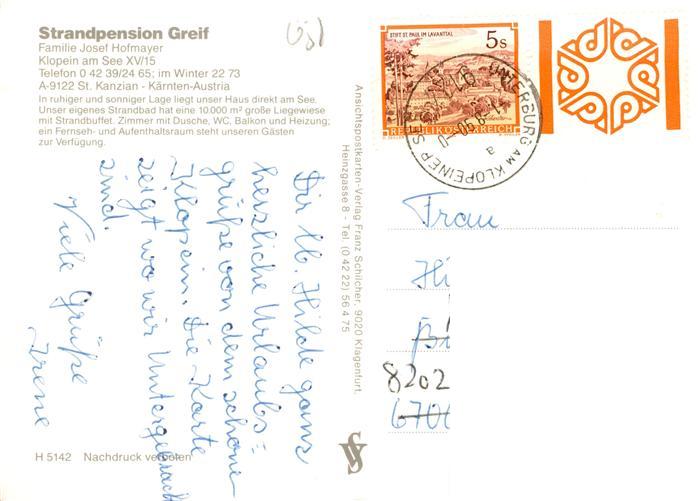 Strandpension Greif
Familie Josef Hofmayer
Klopein am See XV/15
Telefon 0 42 39/24 65; im Winter 22 73
A-9122 St. Kanzian - Kärnten-Austria
In ruhiger und sonniger Lage liegt unser Haus direkt am See.
Unser eigenes Strandbad hat eine 10.000 m² große Liegewiese
mit Strandbuffet. Zimmer mit Dusche, WC, Balkon und Heizung;
ein Fernseh- und Aufenthaltsraum steht unseren Gästen
zur Verfügung.
Dir lb. Hilde ganz
herzliche Urlaubs=
grüße von dem schöne
Klopein. Die Karte
zeigt wo wir Untergebrach
sind.
Viele Grüße
Irene
H 5142 Nachdruck verboten
Ansichtspostkarten-Verlag Franz Schilcher, 9020 Klagenfurt.
Heinzgasse 8 - Tel. (0 42 22) 56 4 75
STIFT ST. PAUL IM LAVANTTAL
5s
REPUBLIK ÖSTERREICH
UNTERBURG AM KLOPEINER SEE
a
Frau
Hi
Bi
8202
6700